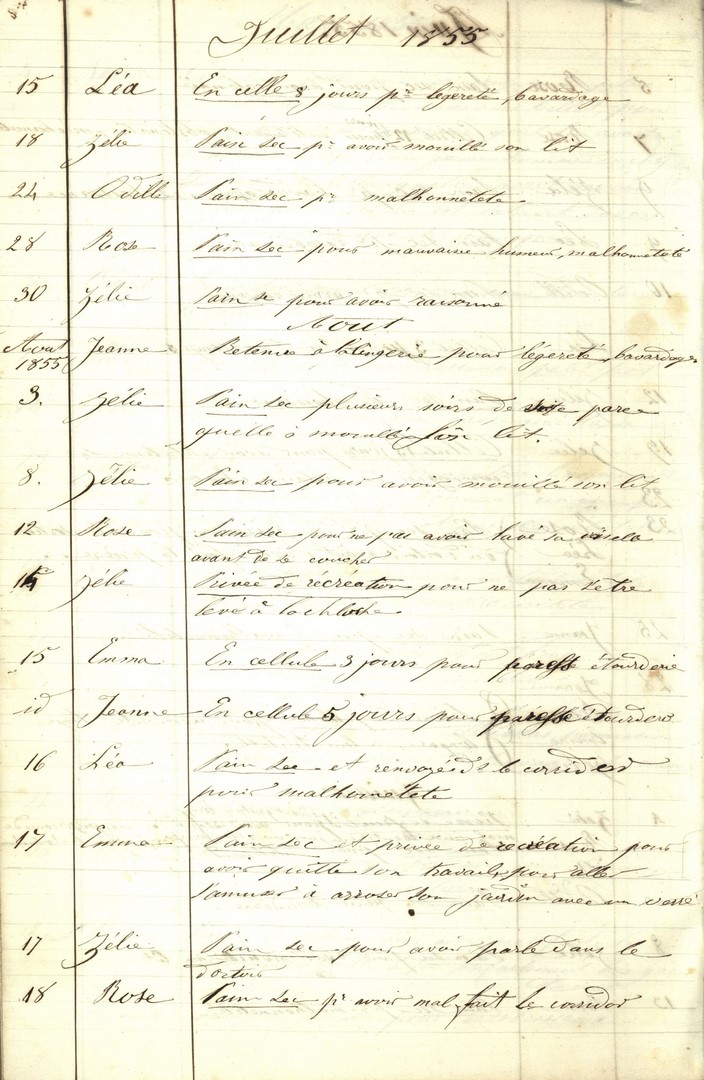 Juillet 1855
15 Léa En celle 8 jours pr légereté, bavardage
18 Zélie Pain sec pr avoir mouillé son lit
24 Odille Pain sec pr malhonnêtete
28 Rose Pain sec pour mauvaise humeur, malhonnêteté
30 Zélie Pain se pour avoir raisonné
Aout
Aout 1855 Jeanne Retenue à la lingerie pour légereté, bavardage
3. Zélie Pain sec plusieurs soirs de parce
quelle à mouillé son lit.
8. Zélie Pain sec pour avoir mouillé son lit
12 Rose Pain sec pour ne pas avoir lavé sa
avant de se coucher
Zélie Privée de récréation pour ne pas s'etre
levé à la chloche
15 Emma En cellule 3 jours pour paresse étourderie
id Jeanne En cellule 5 jours pour paresse étourderie
16 Léa Pain sec et renvoyée ds le corridor
pour malhonnetete
17 Emma Pain sec et privée de recréation pour
avoir quitté son travail, pour aller
s'amuser à arroser son jardin avec un verre
17 Zélie Pain sec pour avoir parlé dans le
dortoir
18 Rose Pain sec pr avoir mal fait le corridor